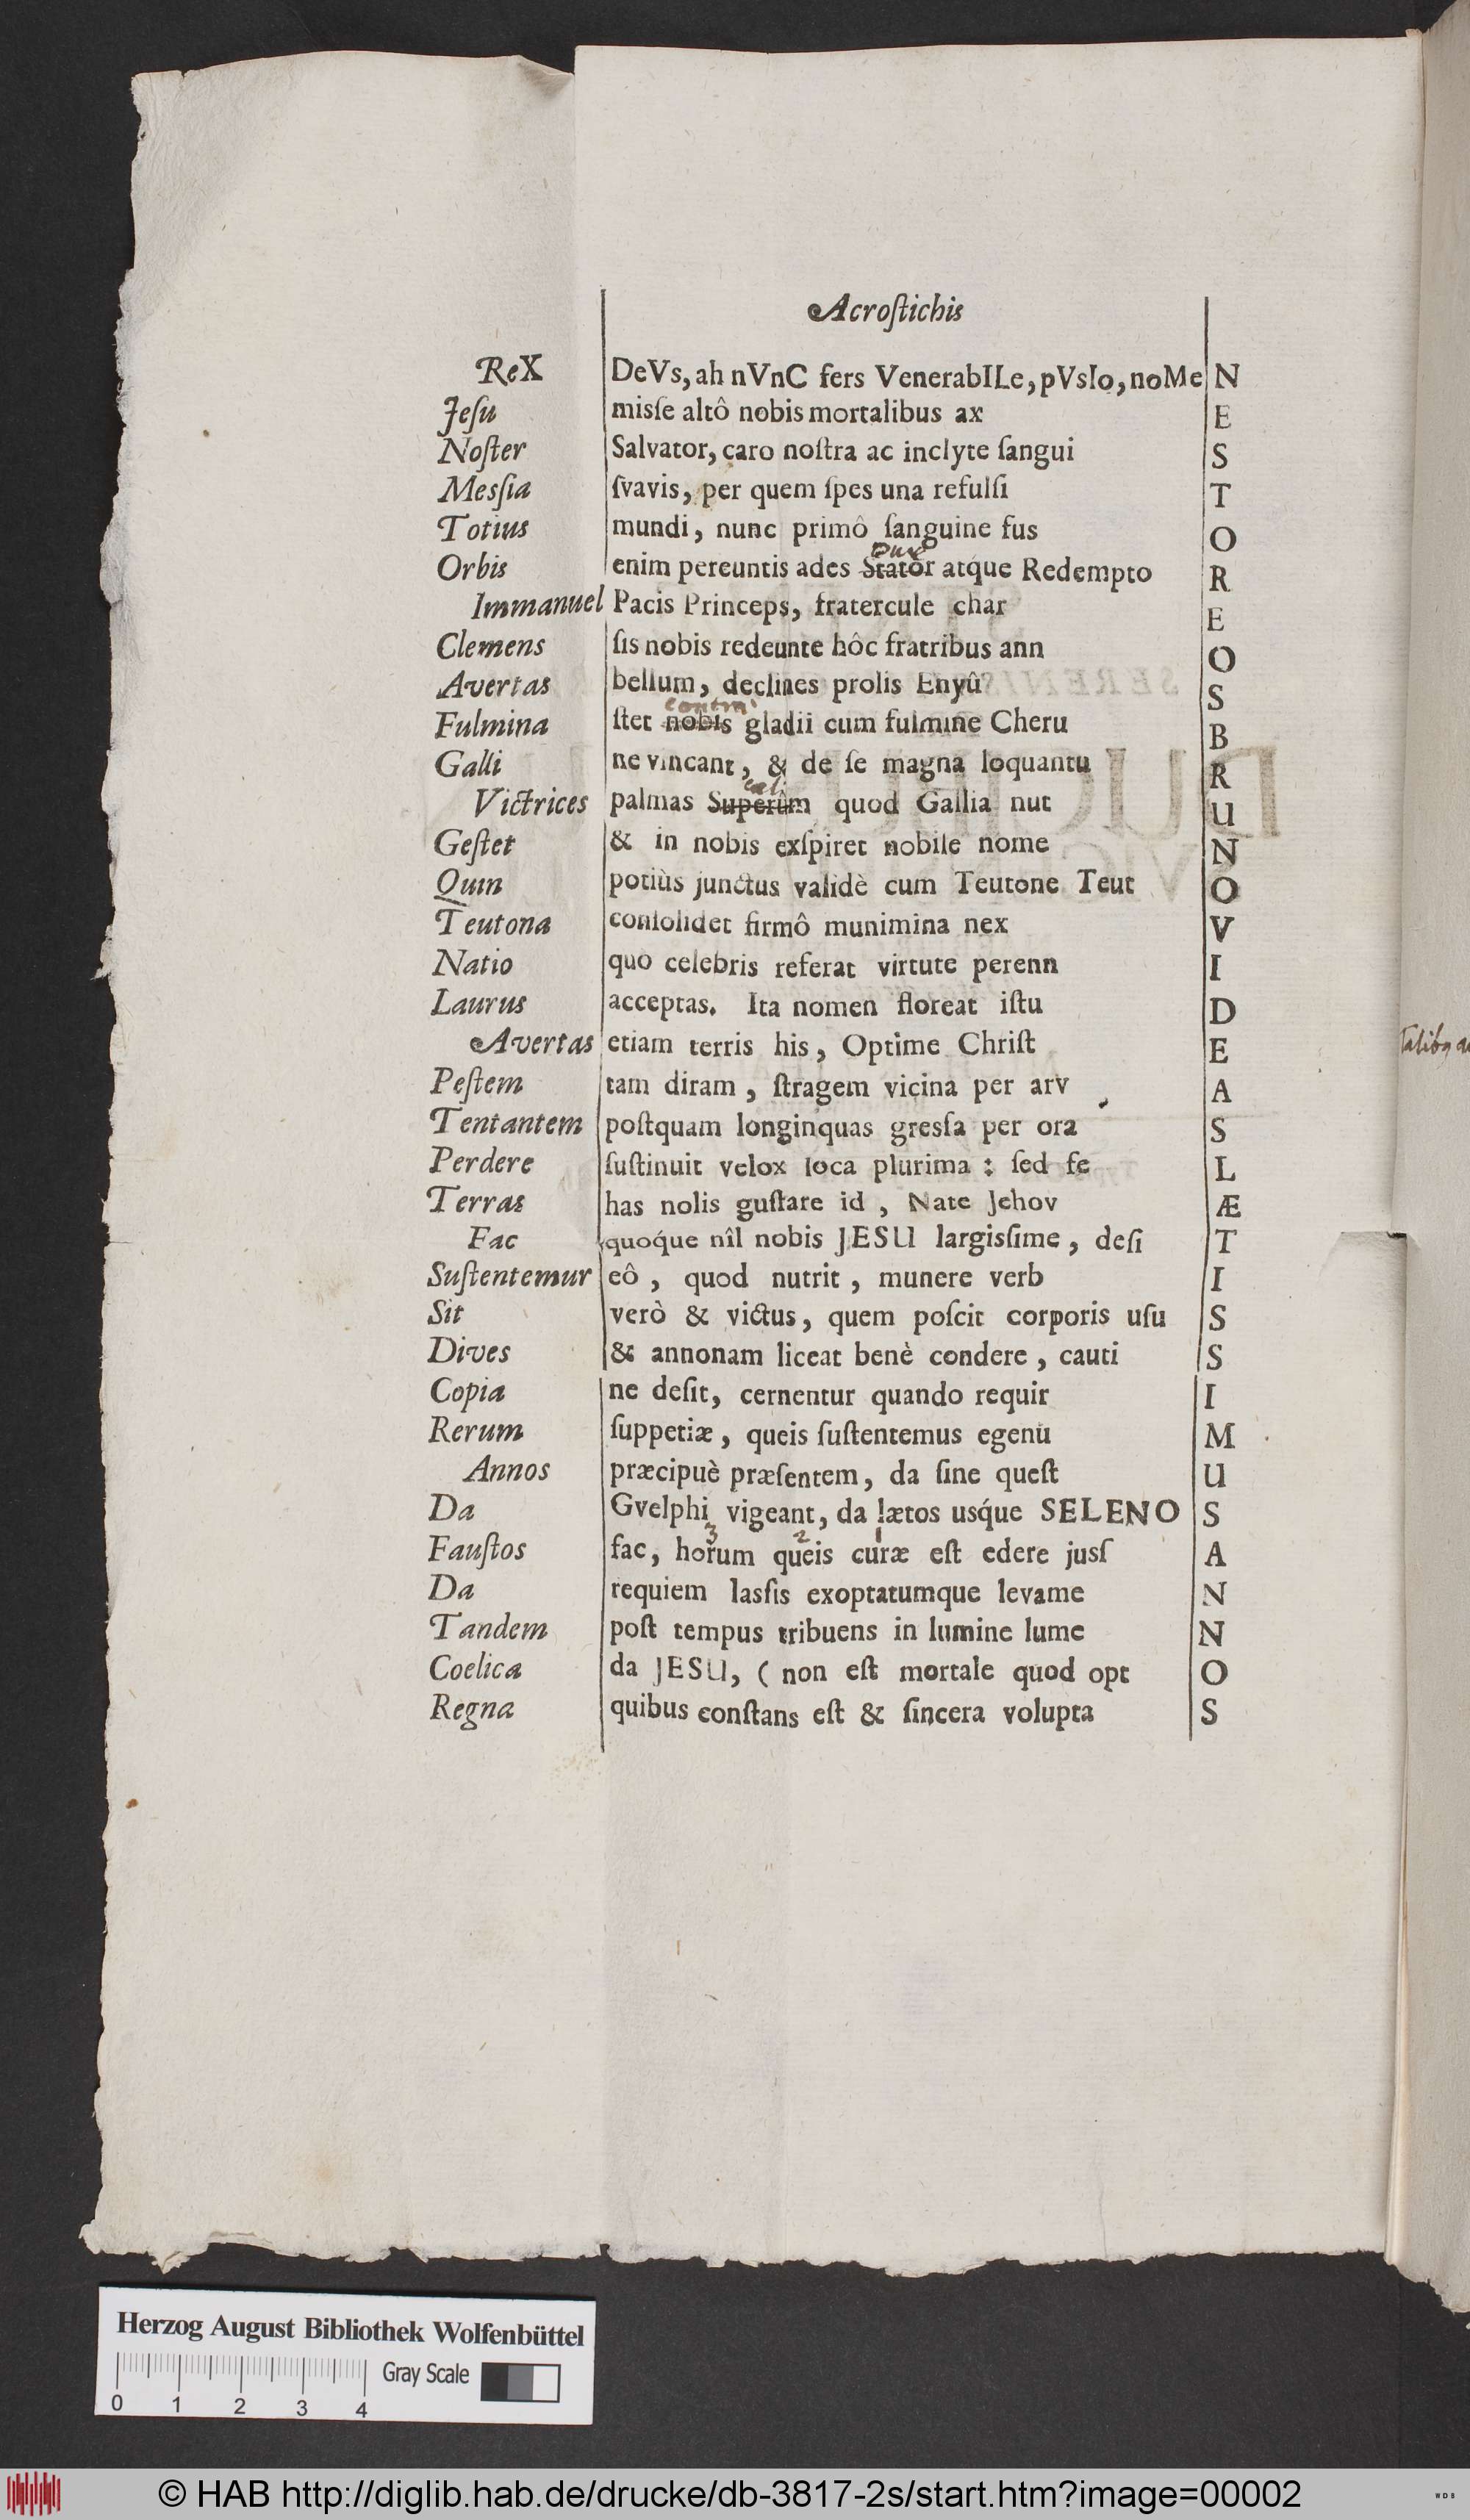 Acroſtichis
ReX DeVs, ah nVnC fers VenerabILe, pVsIo, noMe N
Jeſu misſe altô nobis mortalibus ax E
Noſter Salvator, caro noſtra ac inclyte ſangui S
Mesſia ſvavis, per quem ſpes una refulſi T
Totius mundi, nunc primô ſanguine fus O
Dux
Orbis enim pereuntis ades Stator atque Redempto R
Immanuel Pacis Princeps, fratercule char E
Clemens ſis nobis redeunte hôc fratribus ann O
Avertas bellum, declines prolis Enyû S
contra
Fulmina ſtet nobis gladii cum fulmine Cheru B
Galli ne vincant, & de ſe magna loquantu R
cæli
Victrices palmas Superûm quod Gallia nut U
Geſtet & in nobis exſpiret nobile nome N
Quin potiùs junctus validè cum Teutone Teut O
Teutona conſolidet firmô munimina nex V
Natio quo celebris referat virtute perenn I
Laurus acceptas. Ita nomen floreat iſtu D
Avertas etiam terris his, Optime Chriſt E
Peſtem tam diram, ſtragem vicina per arv A
Tentantem poſtquam longinquas gresſa per ora S
Perdere ſuſtinuit velox loca plurima : ſed fe L
Terras has nolis guſtare id, Nate Jehov Æ
Fac quoq́ue nîl nobis JESU largisſime, deſi T
Suſtentemur eô, quod nutrit, munere verb I
Sit verò & victus, quem poſcit corporis uſu S
Dives & annonam liceat benè condere, cauti S
Copia ne deſit, cernentur quando requir I
Rerum ſuppetiæ, queis ſuſtentemus egenu M
Annos præcipuè præſentem, da ſine queſt U
Da Gvelphi vigeant, da lætos usq́ue SELENO S
3 2 1
Fauſtos fac, horum queis curæ eſt edere jusſ A
Da requiem lasſis exoptatumque levame N
Tandem poſt tempus tribuens in lumine lume N
Coelica da JESU, ( non eſt mortale quod opt O
Regna quibus conſtans eſt & ſincera volupta S
Herzog August Bibliothek Wolfenbüttel
Gray Scale
0 1 2 3 4
© HAB http://diglib.hab.de/drucke/db-3817-2s/start.htm?image=00002
WDB